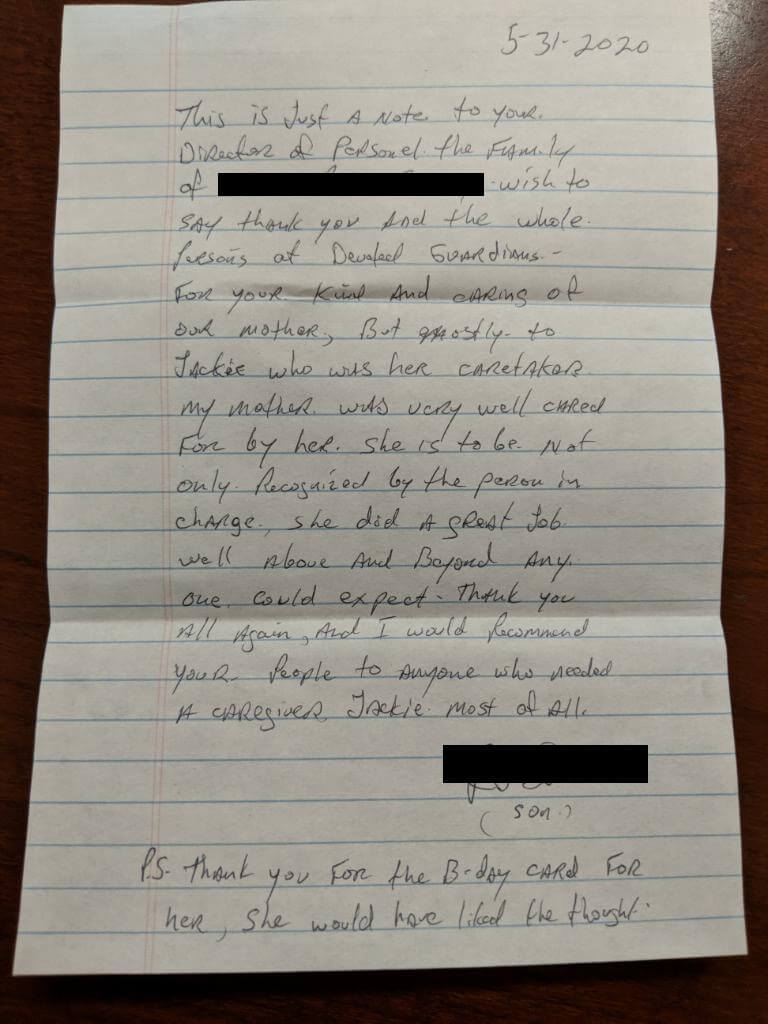 5-31-2020
This is Just A Note to your.
Director of Personel. the Family
of wish to
say thank you And the whole.
Persons at Devoted Guardians.-
For your. Kind And caring of
our mother, But mostly- to
Jackie who was her caretaker.
my mother. was very well cared
For by her. She is to be Not
only. Recognized by the person in
charge., she did A great Job.
well Above And Beyond Any.
one. could expect- Thank you
All Again, And I would Recommend
your- People to Anyone who needed
A caregiver, Jackie. most of All.
(son.)
P.S. thank you For the B-day card For
her, She would have liked the thought.